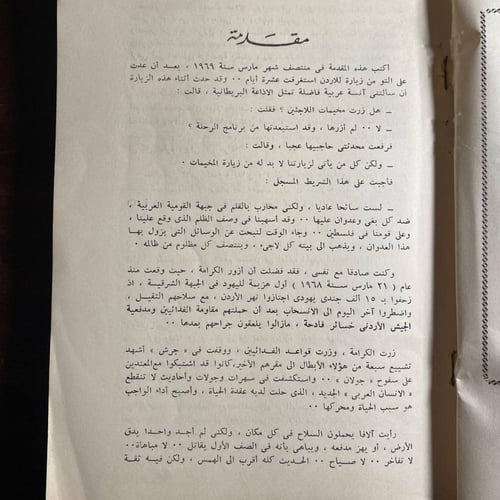 مقدمة
اكتب هذه المقدمة فى منتصف شهر مارس سنة ١٩٦٩ ، بعد أن عدت
على التو من زيارة للاردن استغرقت عشرة أيام ٠٠ وقد حدث أثناء هذه الزيارة
أن سألتنى آنسة عربية فاضلة تمثل الاذاعة البريطانية ، قالت :
ـ هل زرت مخيمات اللاجئين ؟ فقلت :
ـ لا ٠٠ لم أزرها ، وقد استبعدتها من برنامج الرحلة ؟
فرفعت محدثتى حاجبيها عجبا ، وقالت :
ـ ولكن كل من يأتى لزيارتنا لا بد له من زيارة المخيمات ٠
فأجبت على هذا الشريط المسجل :
ـ لست سائحا عاديا ، ولكنى محارب بالقلم فى جبهة القومية العربية ،
ضد كل بغى وعدوان عليها ٠٠ وقد أسهبنا فى وصف الظلم الذى وقع علينا ،
وعلى قومنا فى فلسطين ٠٠ وجاء الوقت لنبحث عن الوسائل التى يزول بها
هذا العدوان ، ويذهب الى بيته كل لاجىء ٠ وينتصف كل مظلوم من ظالمه ٠
وكنت صادقا مع نفسى ، فقد فضلت أن أزور الكرامة ، حيث وقعت منذ
عام ( ٢١ مارس سنة ١٩٦٨ ) أول هزيمة لليهود فى الجبهة الشرقية ، اذ
زحفوا بـ ١٥ ألف جندى يهودى اجتازوا نهر الأردن ، مع سلاحهم الثقيل ،
واضطروا آخر اليوم الى الانسحاب بعد أن حملتهم مقاومة الفدائيين ومدفعية
الجيش الأردنى خسائر فادحة ، مازالوا يلعقون جراحهم بعدها ٠٠
زرت الكرامة ، وزرت قواعد الفدائيين ، ووقفت فى « جرش » أشهد
تشييع سبعة من هؤلاء الأبطال الى مقرهم الأخير، كانوا قد اشتبكوا مع المعتدين
على سفوح « جولان » ٠٠ واستكشفت فى سهرات وجولات وأحاديث لا تنقطع
« الانسان العربى » الجديد ، الذى حلت لديه عقدة الحياة ، وأصبح أداء الواجب
هو سبب الحياة ومحركها ٠٠
رأيت آلافا يحملون السلاح فى كل مكان ، ولكنى لم أجد واحدا يدق
الأرض ، أو يهز مدفعه ، ويباهى بأنه فى الصف الأول يقاتل ٠٠ لا مباهاة ٠٠
لا تفاخر ٠٠ لا صياح ٠٠ الحديث كله أقرب الى الهمس ، ولكن فيه ثقة